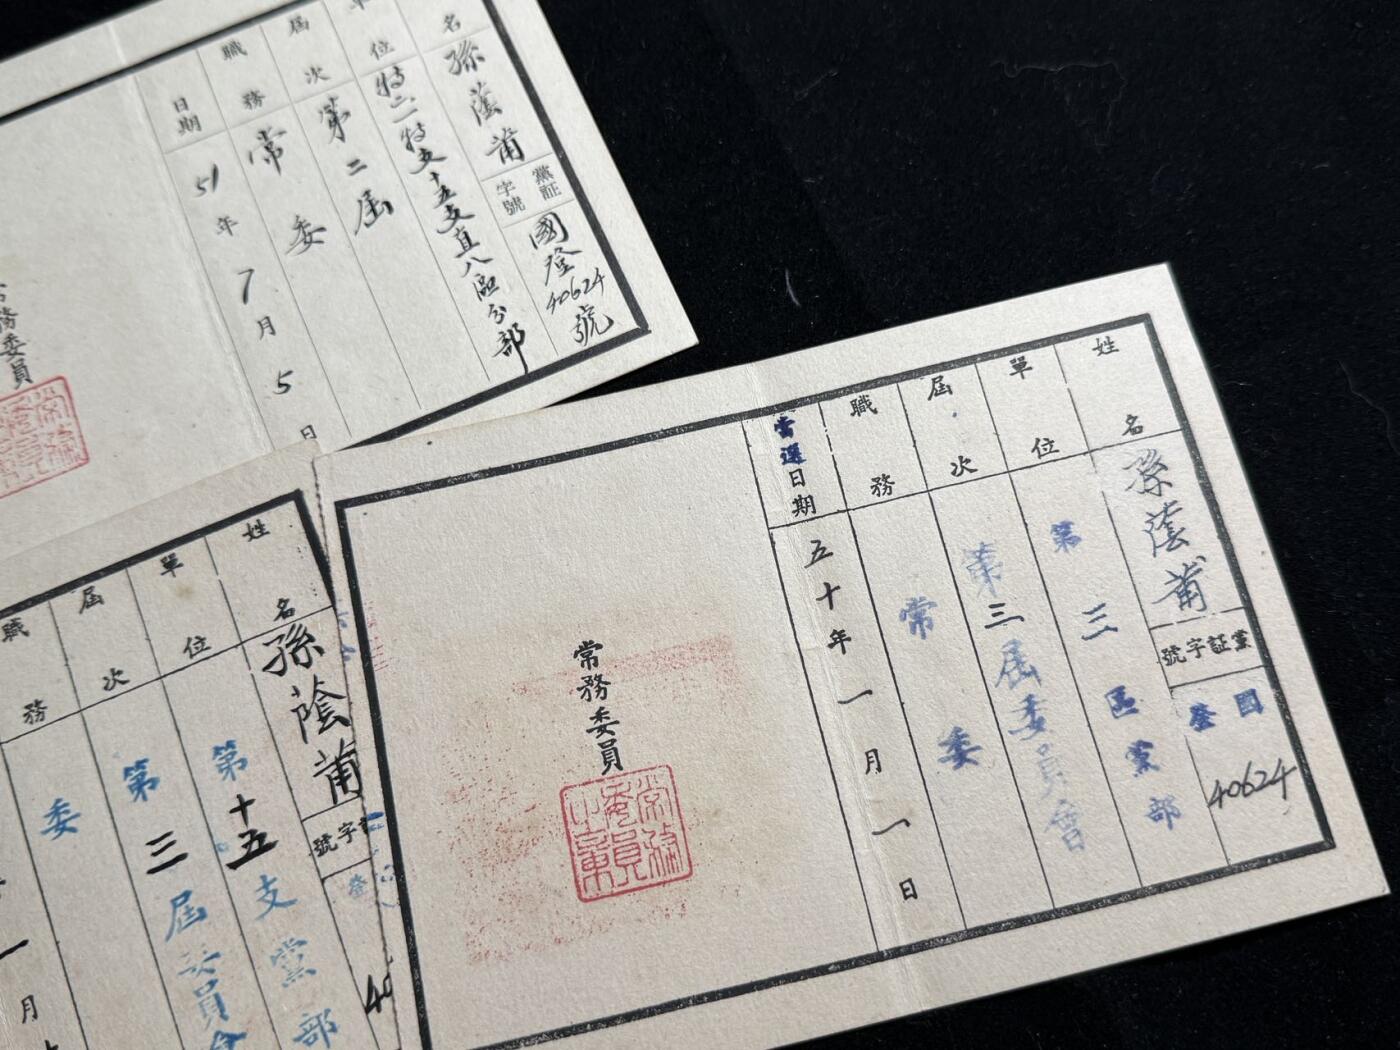 姓名
孫蔭甫
黨証字號
國登
40624
單位
第三區黨部
屆次
第三屆委員會
職務
常委
當選日期
五十年一月一日
常務委員
名
孫蔭甫
黨証字號
國登40624號
位
特二特支十五支直八區分部
屆次
第二屆
職務
常委
日期
51年7月5日
務委員
姓名
孫蔭甫
字號
登
40
單位
第十五支黨部
屆次
第三屆委員會
職務
委
一月